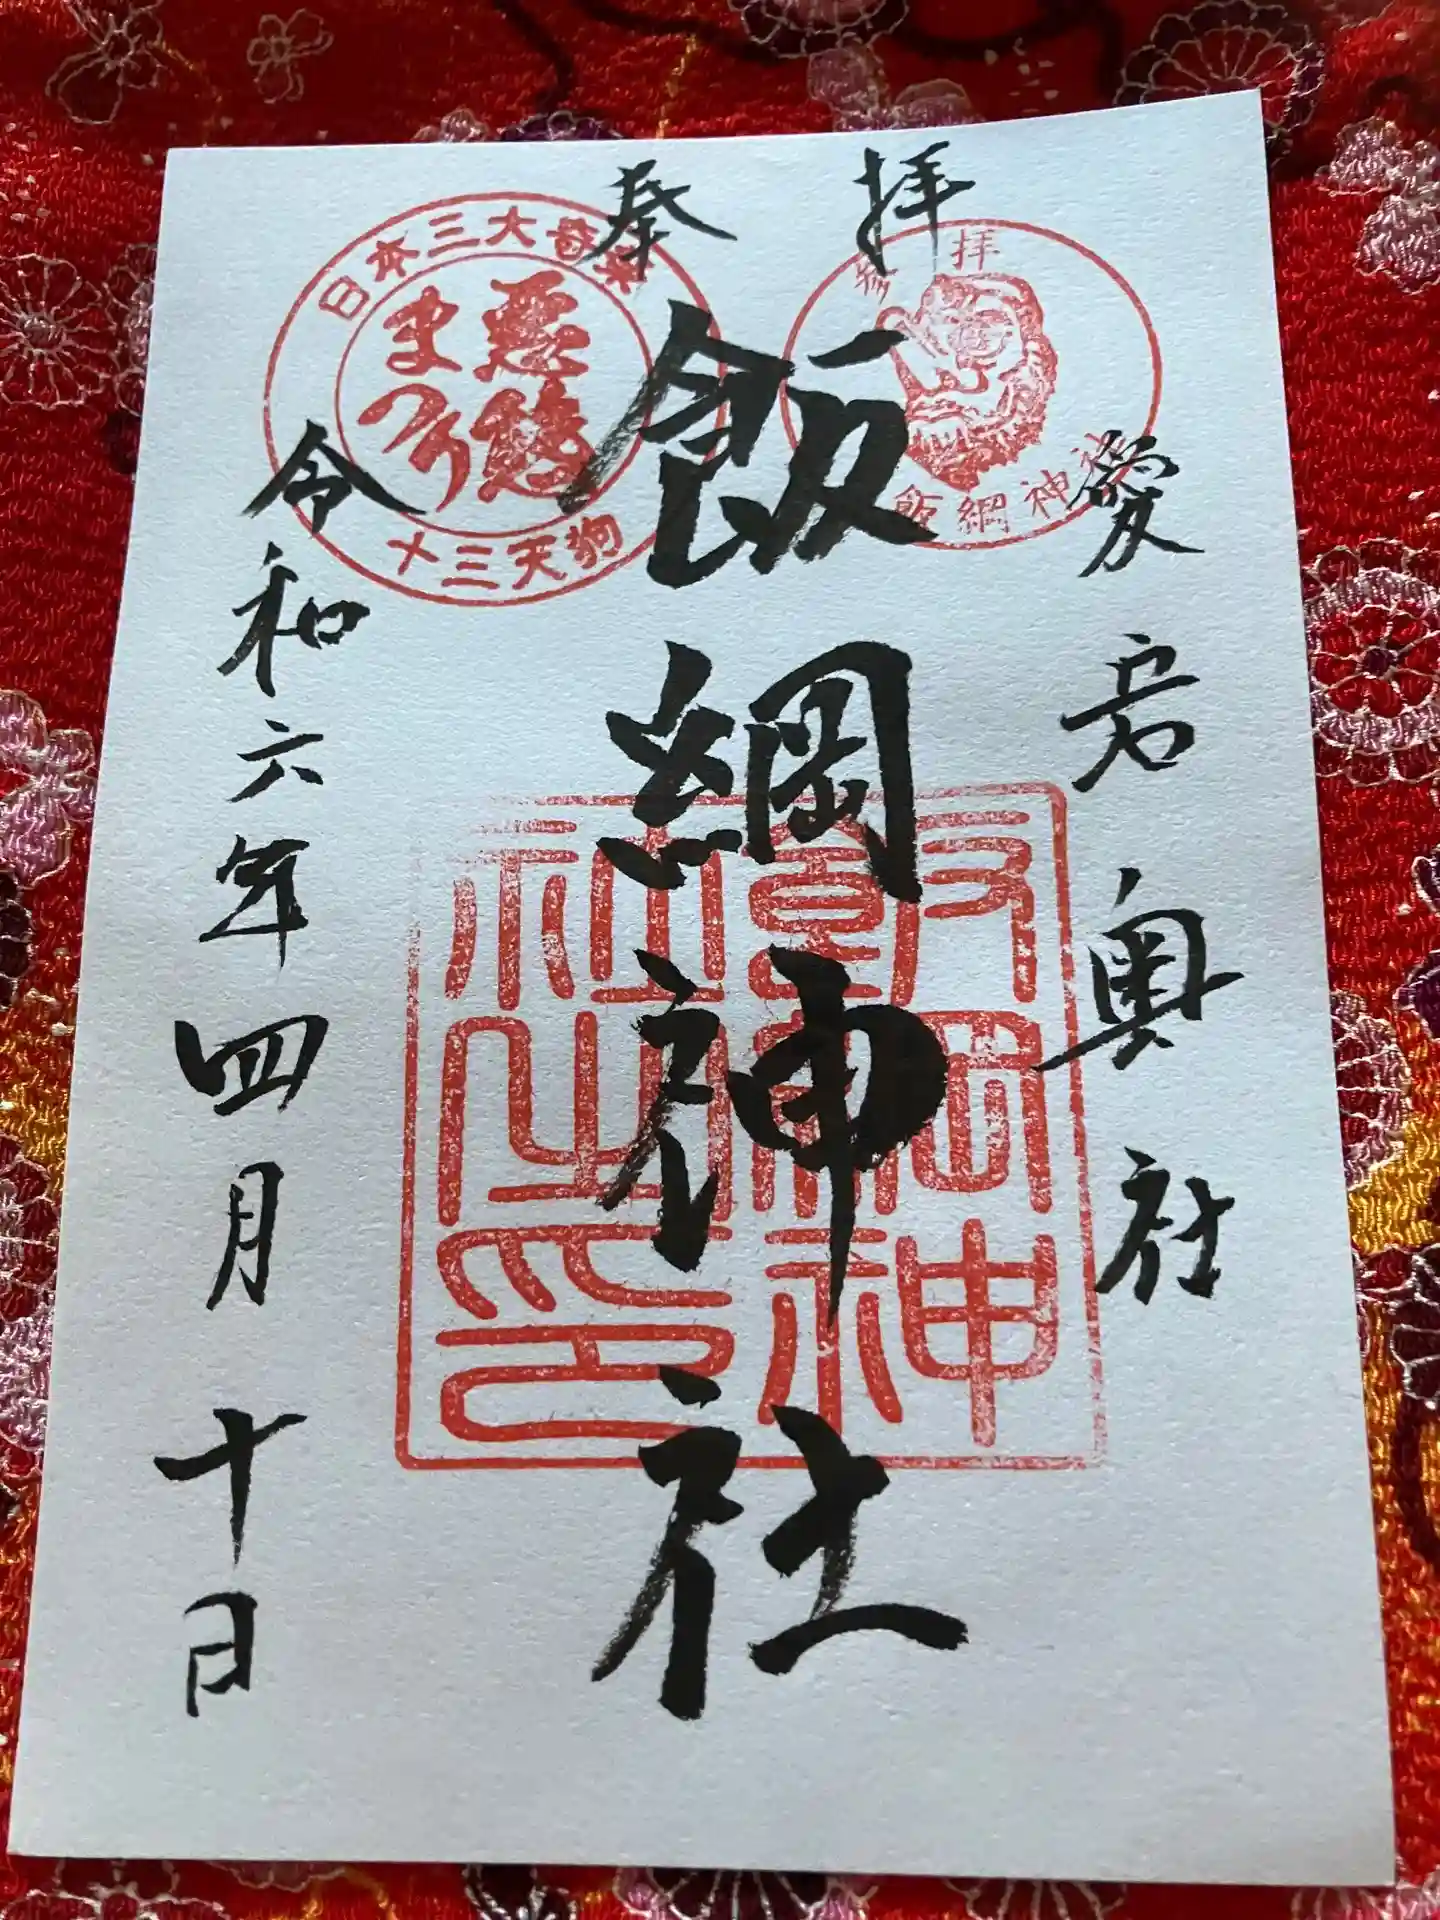 奉拝
愛宕奥社
飯綱神社
令和六年四月十日
日本三大奇祭
悪態
まつり
十三天狗
拝
飯綱神社
飯綱神
社之印